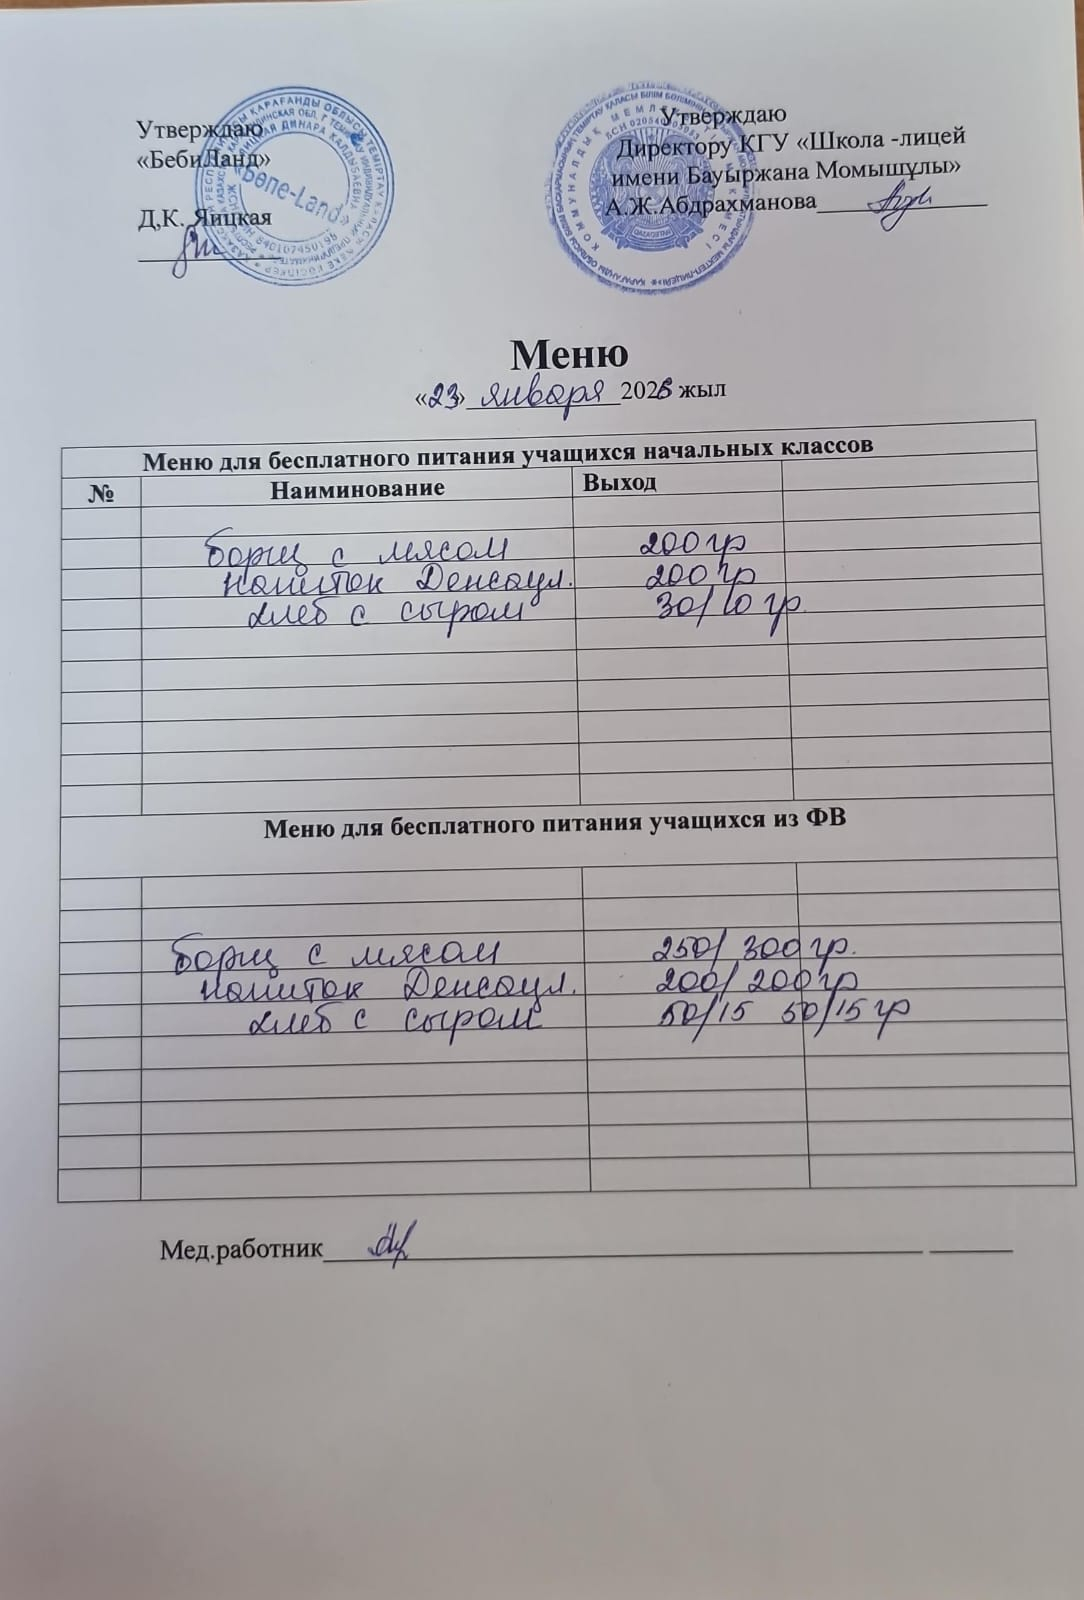 Утверждаю
«БебиЛанд»
Д,К. Яицкая
«Бөпе-Land»
Утверждаю
Директору КГУ «Школа -лицей
имени Бауыржана Момышұлы»
А.Ж.Абдрахманова
QAZAQSTAN
Меню
«23» января 2026 жыл
Меню для бесплатного питания учащихся начальных классов
№ Наиминование Выход
борщ с мясом 200 гр
напиток Денсаул. 200 гр
хлеб с сыром 30/10 гр.
Меню для бесплатного питания учащихся из ФВ
борщ с мясом 250/ 300 гр.
напиток Денсаул. 200/ 200 гр
хлеб с сыром 50/15 50/15 гр
Мед.работник